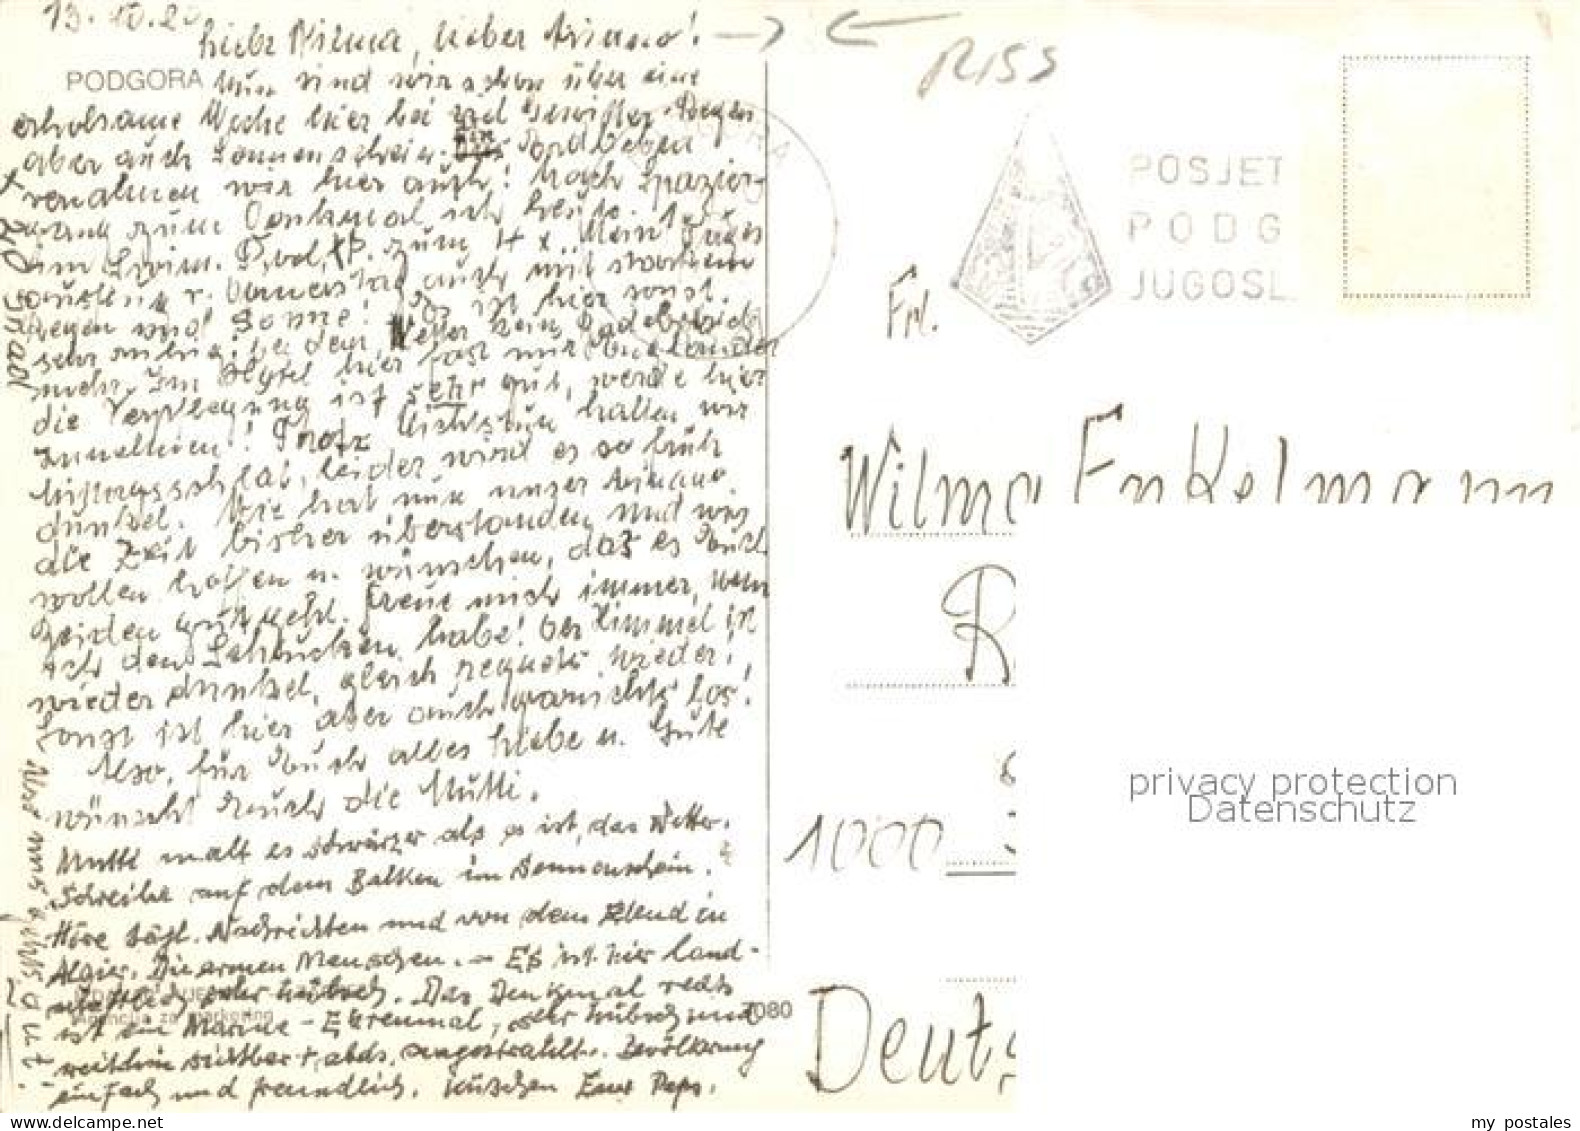 13.10.
Liebe Wilma, lieber Armano!
PODGORA Nun sind wir schon über eine
erholsame Woche hier bei viel Gewitter-Regen
aber auch Sonnenschein. Ein Erdbeben
vernahmen wir hier auch! Nach Spazier-
gang zum Denkmal, ich heute. 
im Swim. P. zum 4 x. Mein
v. Donnerstag auch mit starkem
Regen und Sonne! Es ist hier sonst
sehr ruhig! bei dem Wetter kein Badebetrieb
mehr. Im Hotel hier fast nur Engländer
die Verpflegung ist sehr gut, werde hier
zunehmen! Trotz halten wir
Mittagsschlaf, leider wird es so früh
dunkel. Wie hat nun unser Armano
die Zeit bisher überstanden und wir
wollen hoffen u. wünschen, daß es Euch
beiden gut geht. Freue mich immer, wenn
ich den habe! Der Himmel ist
wieder dunkel, gleich regnets wieder!
Sonst ist hier aber auch garnichts los!
Also, für Euch alles Liebe u. Gute
wünscht Euch die Mutti.
Mutti malt es schwärzer als es ist, das Wetter.
Schreibe auf dem Balkon im Sonnenschein.
Höre tägl. Nachrichten und von dem Elend in
Algier. Die armen Menschen. – Es ist hier land-
schaftlich sehr hübsch. Das Denkmal rechts
ist ein Marine-Ehrenmal, sehr hübsch und
weithin sichtbar + abds. angestrahlt. Bevölkerung
einfach und freundlich. Küsschen Euer Paps.
20 Grad
uns gehts gut!
za marketing
7080
RISS
POSJET
PODG
JUGOSL
Frl.
Wilma Enkelmann
R
1000
Deuts
privacy protection
Datenschutz
www.ansichtskartenversand.com
my postales